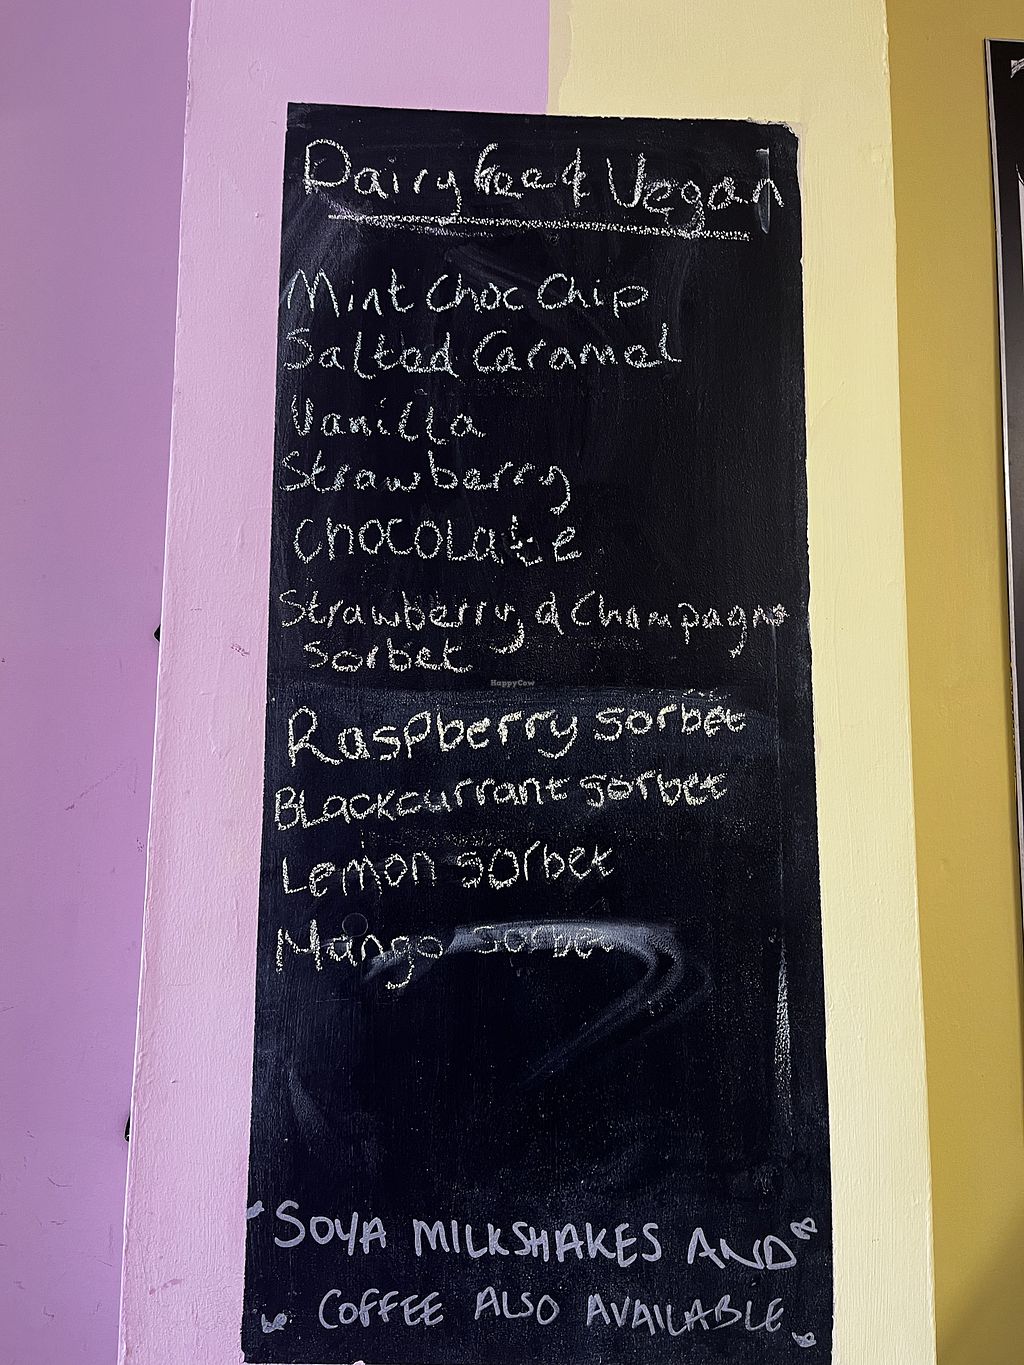 Dairy free & Vegan
Mint Choc Chip
Salted Caramel
Vanilla
Strawberry
Chocolate
Strawberry & Champagne
Sorbet
HappyCow
Raspberry sorbet
Blackcurrant sorbet
Lemon sorbet
Mango sorbet
SOYA MILKSHAKES AND
COFFEE ALSO AVAILABLE